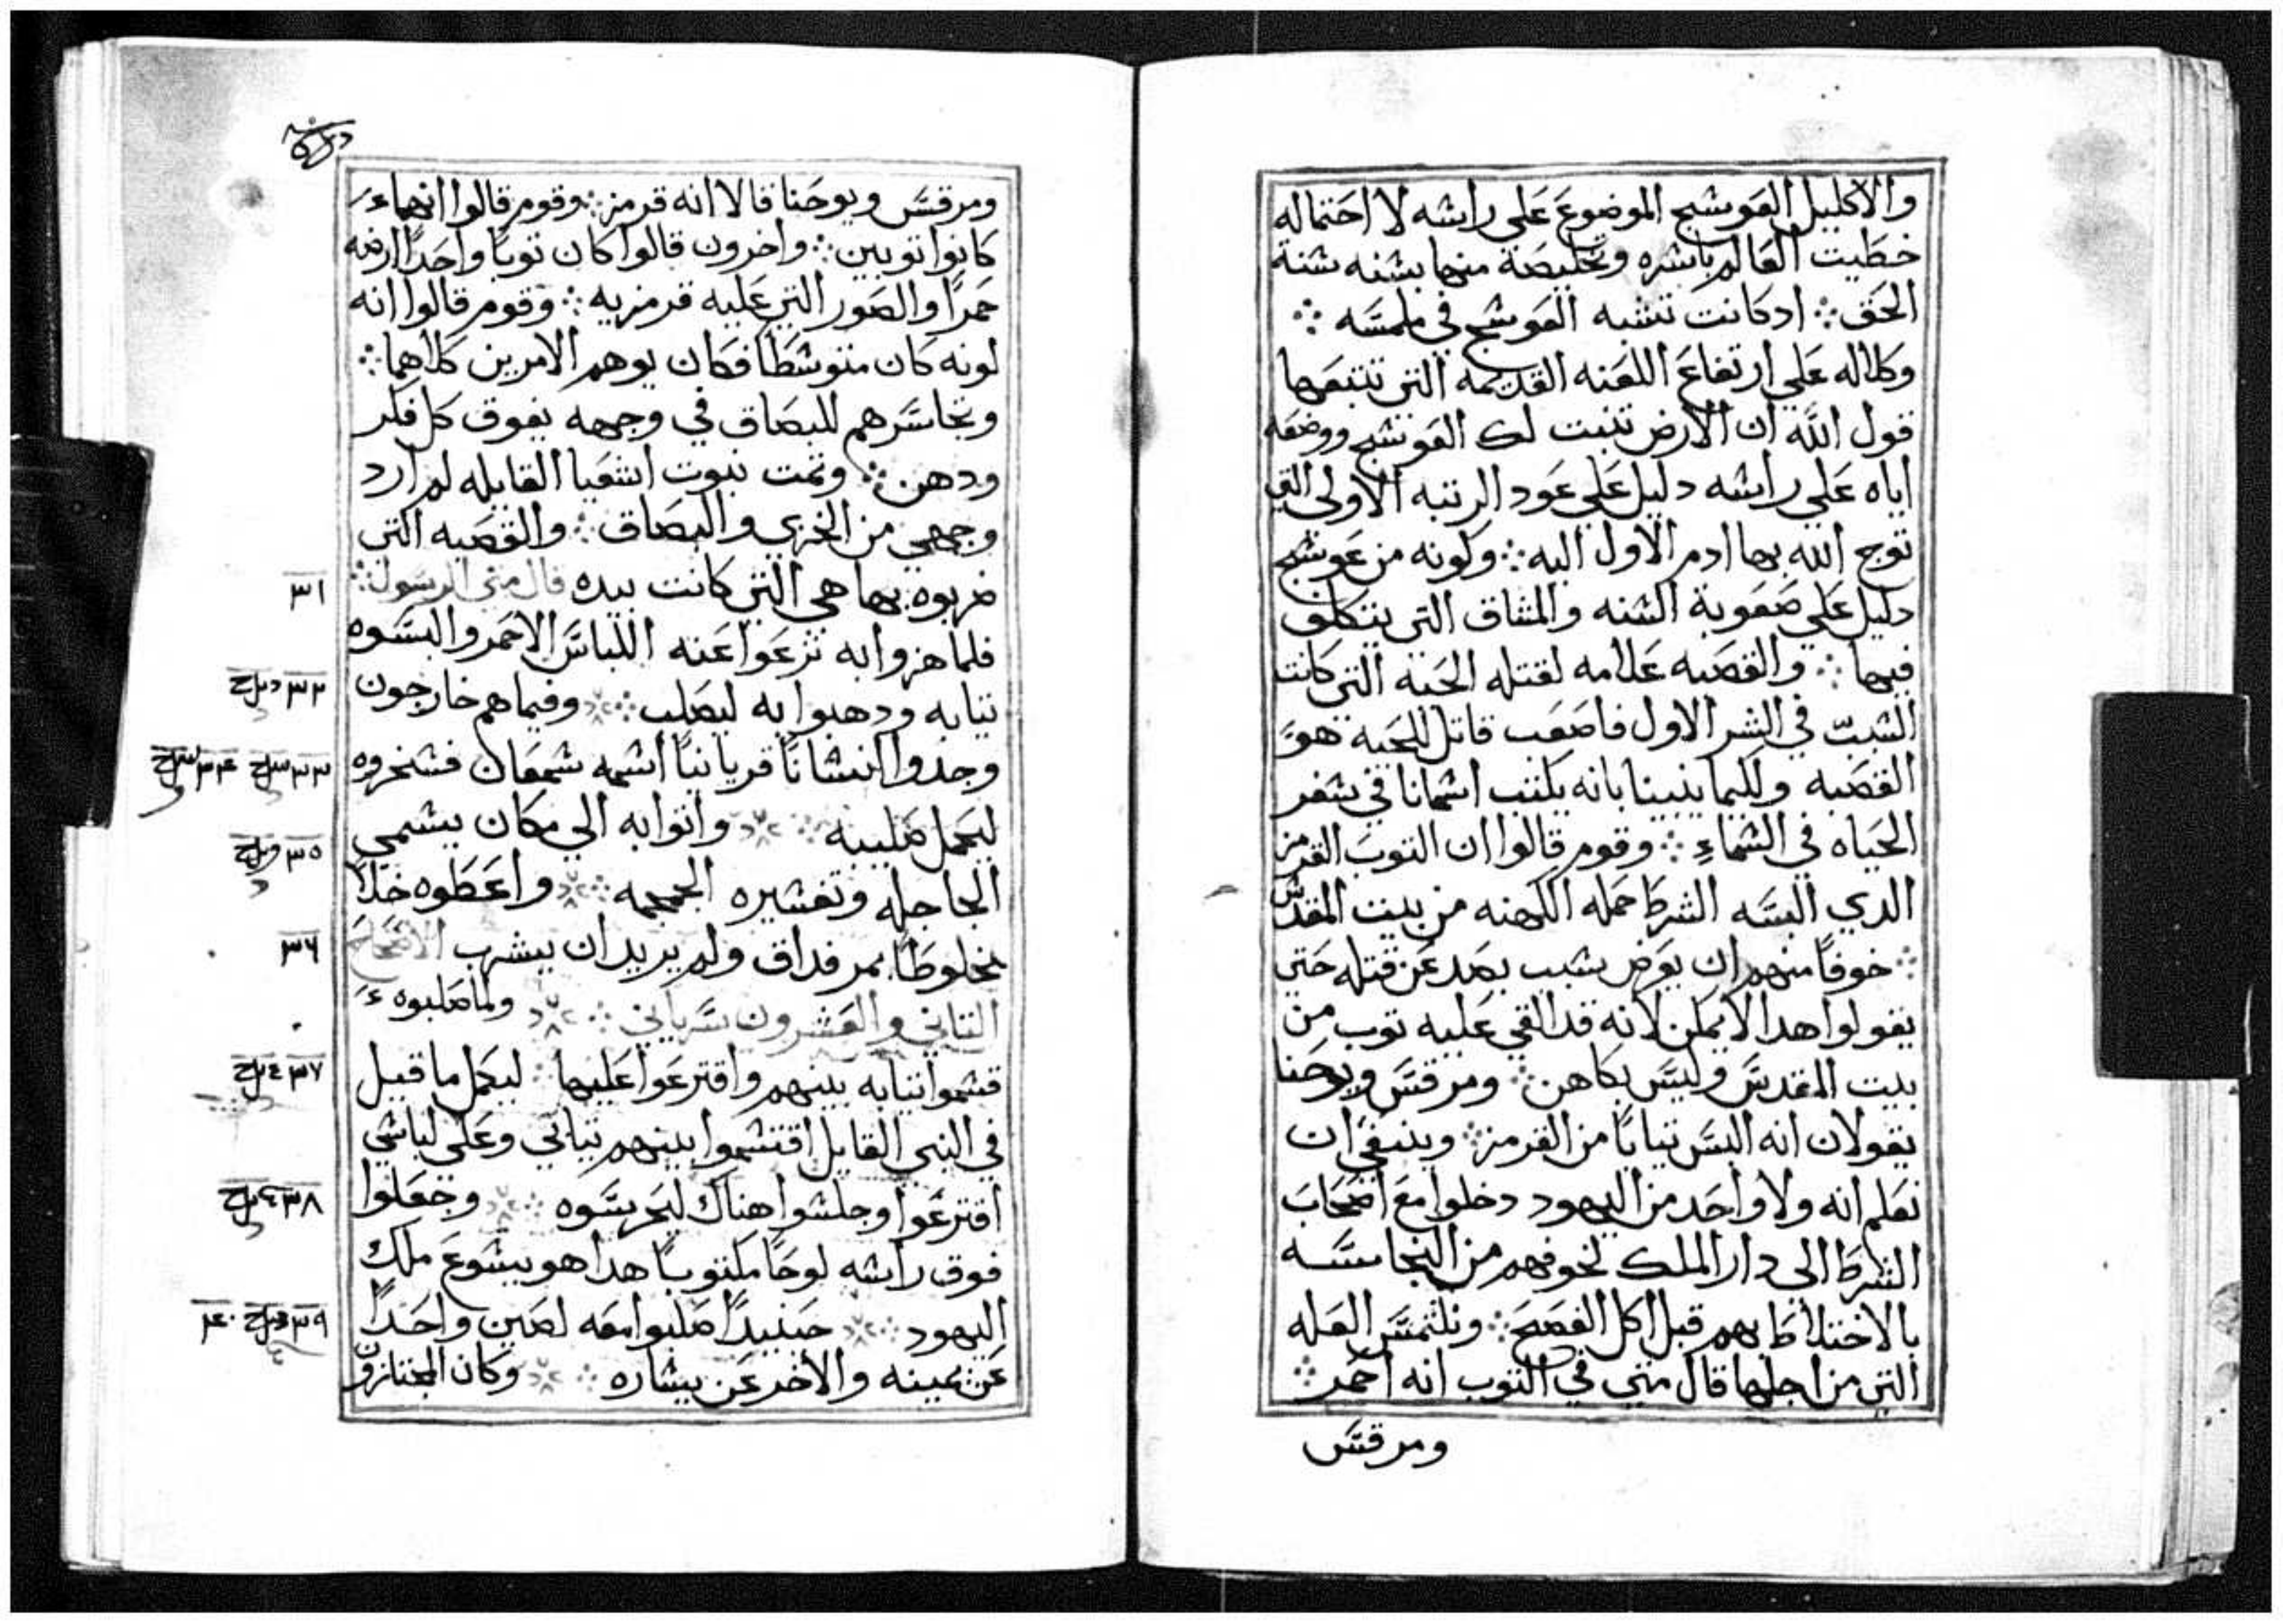 والاكليل العوشج الموضوع على راشه لااحتماله
خطيت العالم باشره وتخليصة منها بشنه شنة
الحق ܀ ادكانت تتشبه العوشج في ملمسه ܀
وكلاله علي ارتفاع اللعنه القديمه التي تتبعها
قول الله ان الارض تنبت لك العوشج ووضعه
اياه علي راشه دليل علي عود الرتبه الاولي التي
توج الله بها ادم الاول اليه ܀ وكونه من عوشج
دليل علي صعوبة الشنه والمشاق التي يتكلف
فيها ܀ والقصبه علامه لقتله الحية التي كانت
الشبب في الشر الاول فاصعب قاتل للحية هو
القصبه ولكيما ينبينا بانه يكتب اشمانا في شفر
الحياه في الشماء ܀ وقوم قالوا ان التوب القرمز
الدي البسه الشرط حمله الكهنه من بيت المقدس
܀ خوفًا منهم ان يعرض بشبب يصد عن قتله حتى
يقولوا هدا لايمكن لانه قد القي عليه توب من
بيت المقدس وليس بكاهن ܀ ومرقس ويوحنا
يقولان انه البس تيابًا من القرمز ܀ وينبغي ان
نعلم انه ولا واحد من اليهود دخلوا مع اصحاب
الشرط الي دار الملك لخوفهم من النجاسه
بالاختلاط بهم قبل اكل الفصح ܀ ونلتمس العله
التي من اجلها قال متي في التوب انه احمر ܀
ومرقس
ومرقس ويوحنا قالا انه قرمز ܀ وقوم قالوا انهما
كانوا توبين ܀ واخرون قالوا كان توبًا واحدًا ارضه
حمرًا والصور التي عليه قرمزيه ܀ وقوم قالوا انه
لونه كان متوشطًا فكان يوهم الامرين كلاهما ܀
وتجاسرهم للبصاق في وجهه يفوق كل فكر
ودهن ܀ وتمت نبوت اشعيا القايله لم ارد
وجهي من الخزي والبصاق ܀ والقصبه التي
ضربوه بها هي التي كانت بيده قال متي الرسول ܀
٣١
فلما هزوا به نزعوا عنه اللباس الاحمر والبسوه
تيابه ودهبوا به ليصلب ܀ وفيما هم خارجون
٣٢
وجدوا انشانًا قريانيًا اشمه شمعان فشخروه
٣٣ ٣٤
ليحمل صليبه ܀ واتوا به الي مكان يشمى
٣٥
الجاجله وتفشيره الجمجمه ܀ واعطوه خلًا
مخلوطًا بمر فداق ولم يريد ان يشرب الاصحاح
٣٦
التاني والعشرون سرياني ܀ ولما صلبوه
قشموا تيابه بينهم واقترعوا عليها ܀ ليكمل ما قيل
٣٧
في النبي القايل اقتشموا بينهم تيابي وعلى لباشي
اقترعوا وجلشوا هناك ليحرسوه ܀ وجعلوا
٣٨
فوق راشه لوحًا مكتوبًا هدا هو يشوع ملك
اليهود ܀ حينيدًا صلبوا معه لصين واحدًا
٣٩ ٤٠
عن يمينه والاخر عن يشاره ܀ وكان المجتازون